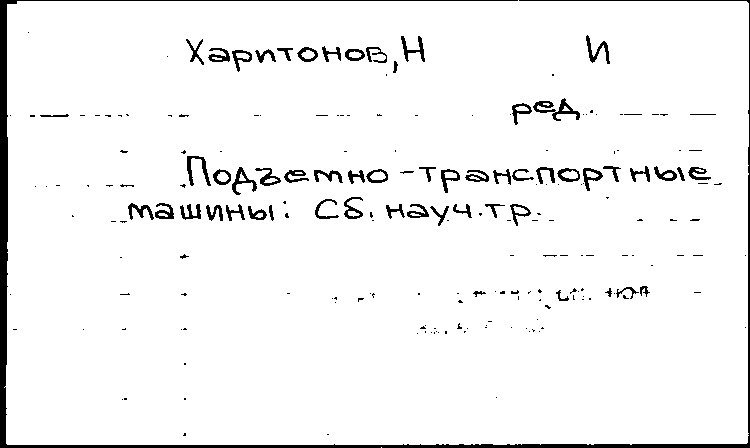 Харитонов, Н И
ред.
Подъемно-транспортные
машины: Сб. науч. тр.